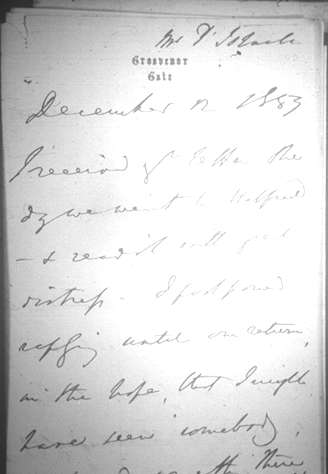 Mrs D'Israeli
Grosvenor
Gate
December 12 1853
I received yr letter the
day we went to Hatfield
- & read it with great
distress. I postponed
replying until our return,
in the hope, that I might
have seen somebody,